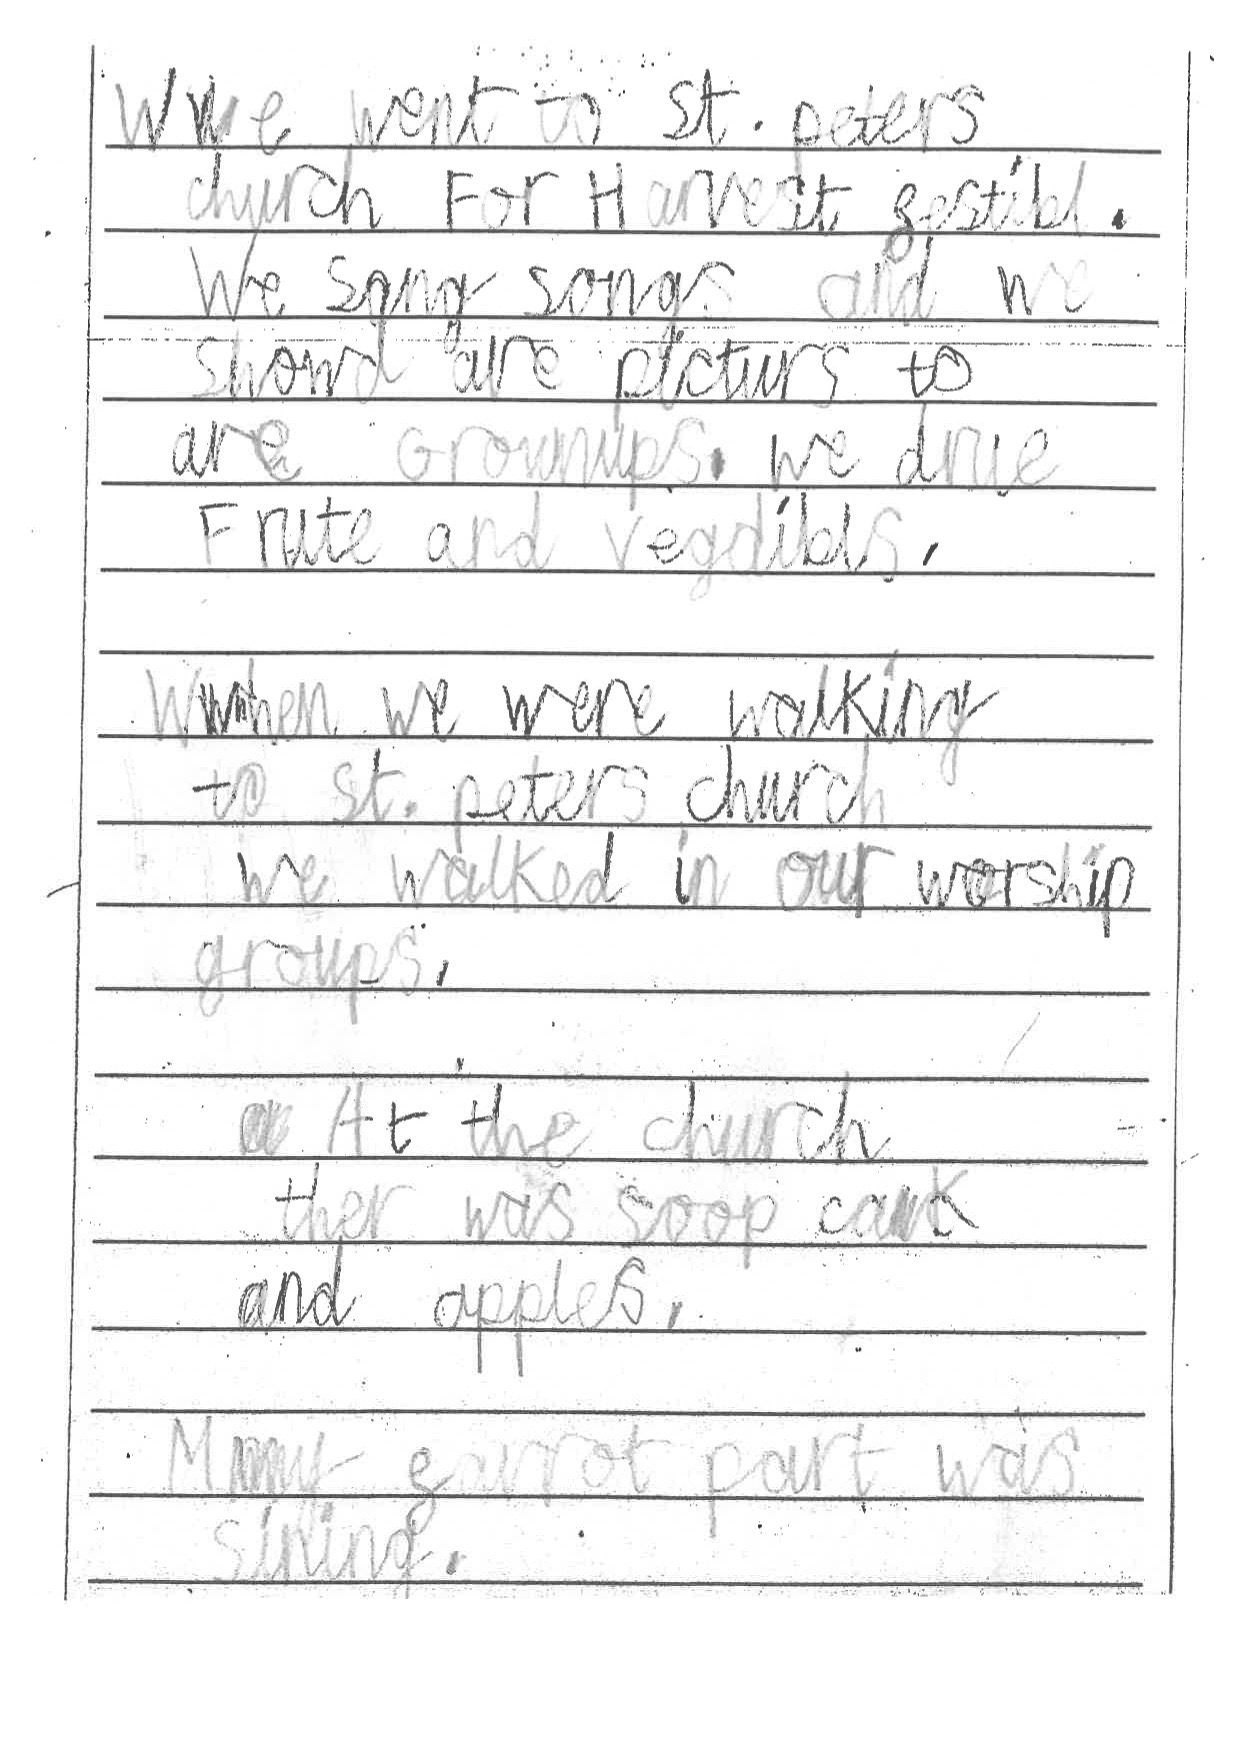 We went to St. peters
church For Harvest festibl.
We sang songs and we
showd are picturs to
are Grownups. we drue
Frute and vegdibls.
When we were walking
to St. peters church
we walked in our worship
groups.
At the church
ther was soop cak
and apples.
My garrot part was
sining.